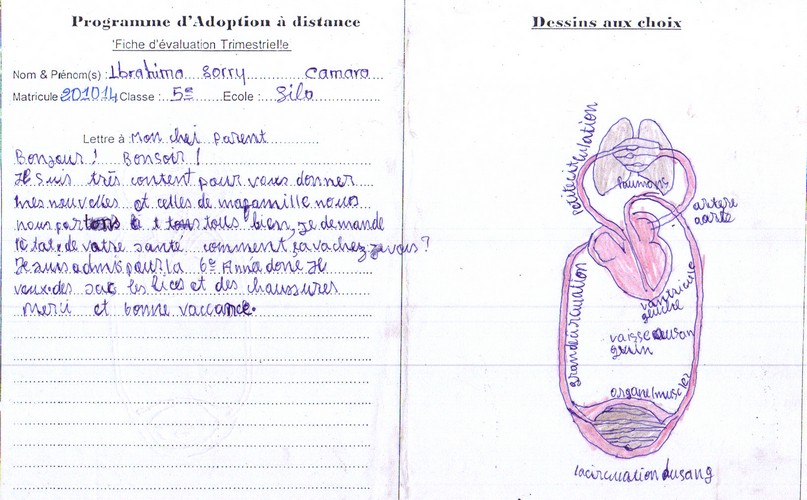 Programme d'Adoption à distance
Fiche d'évaluation Trimestrielle
Nom & Prénom(s) : Ibrahima sorry Camara
Matricule 201014 Classe : 5e Ecole : Silo
Lettre à : Mon cher parent
Bonjour ! Bonsoir !
Je suis très content pour vous donner
mes nouvelles et celles de ma famille nous
nous portons tous bien, je demande
l'état de votre santé comment ça va chez vous ?
Je suis admis pour la 6e Année donc Je
veux des sac les lices et des chaussures
merci et bonne vaccance.
Dessins aux choix
petite circulation
Poumons
artere
aorte
vantricule
gauche
grande circulation
vaisseau san
guin
organe/muscles
la circulation du sang